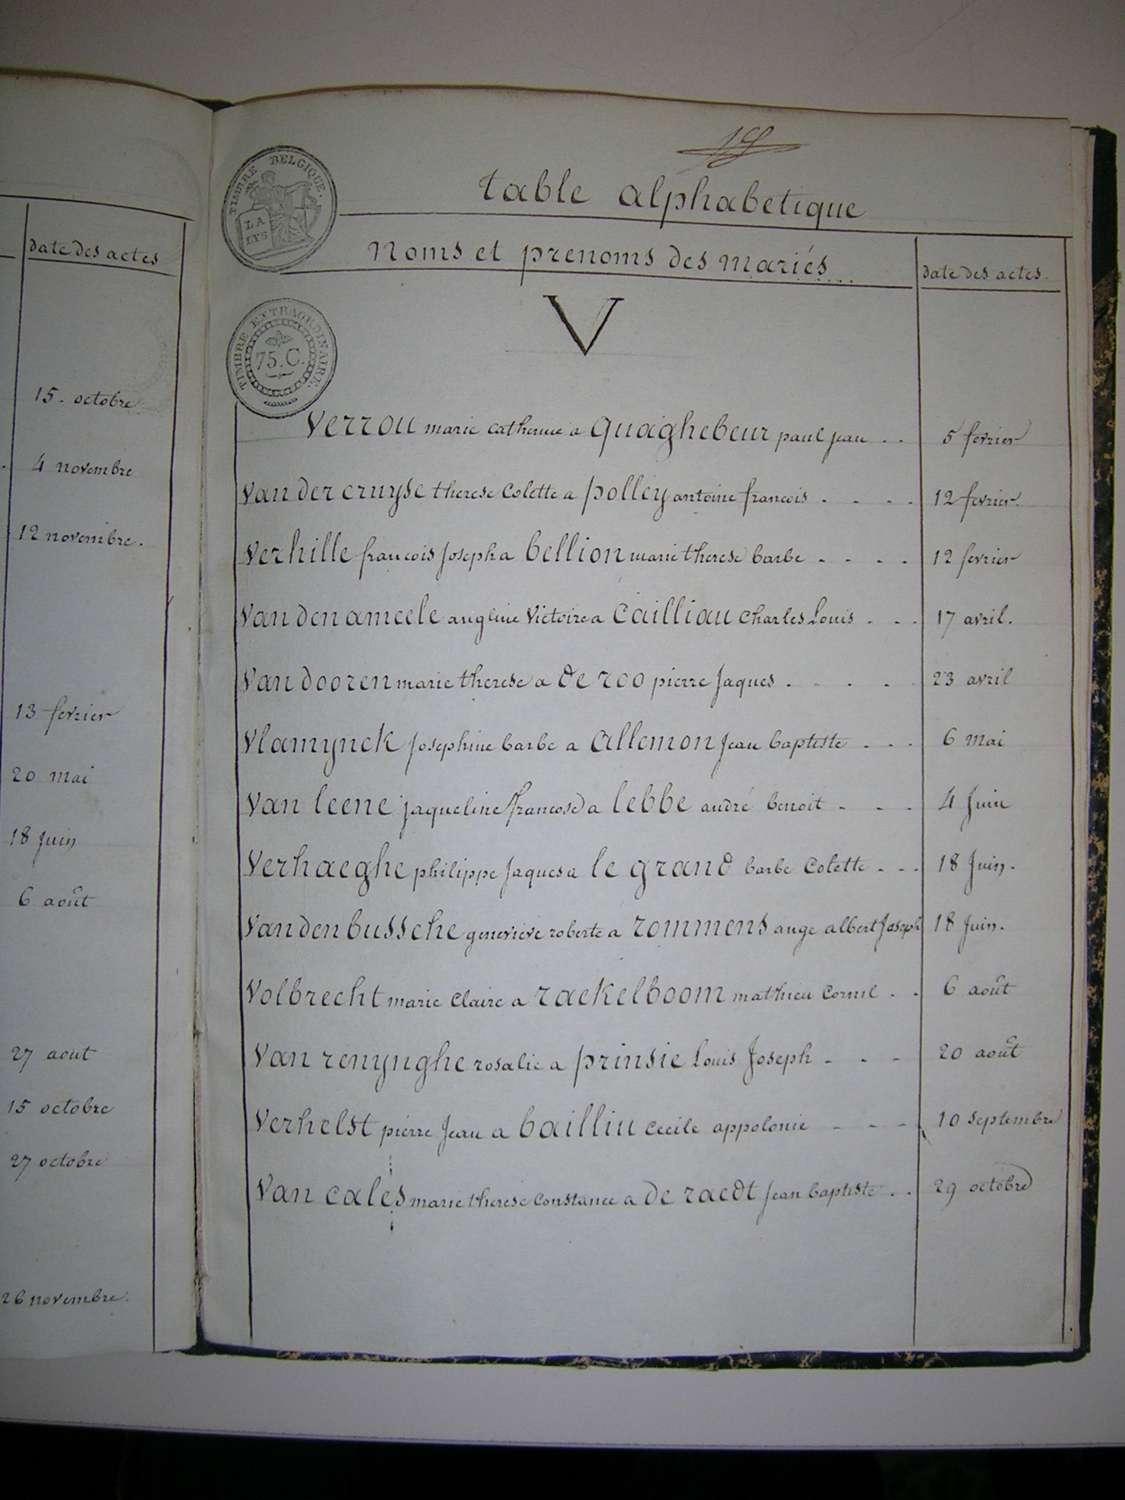 date des actes
15. octobre
4 novembre
12 novembre.
13 fevrier
20 mai
18 Juin
6 août
27 aout
15 octobre
27 octobre
26 novembre.
TIMBRE BELGIQUE
LA
LYS
table alphabetique
noms et prenoms des mariés
date des actes.
TIMBRE EXTRAORDINAIRE
75. C.
V
Verrou marie catherine a quaghebeur paul jean . . 5 fevrier
Van der cruyse therese Colette a polley antoine francois . . . . 12 fevrier.
Verhille francois Joseph a bellion marie therese barbe . . . . 12 fevrier
Van den ameele angeline Victoire a Cailliau Charles Louis . . . 17 avril.
Van dooren marie therese a de roo pierre Jaques . . . . . 23 avril
Vlamynck Josephine barbe a allemon Jean baptiste . . . 6 mai
Van leene Jaqueline a lebbe andré benoit . . . 4 Juin
Verhaeghe philippe Jaques a le grand barbe Colette . . . 18 Juin.
Van den bussche genevieve roberte a rommens ange albert Joseph 18 Juin.
Volbrecht marie Claire a raekelboom mathieu Cornil . . 6 août
Van renynghe rosalie a prinsie Louis Joseph . . . 20 août
Verhelst pierre Jean a bailliu cecile appolonie . . . . 10 septembre
Van cales marie therese constance a de raedt Jean baptiste . . 29 octobre